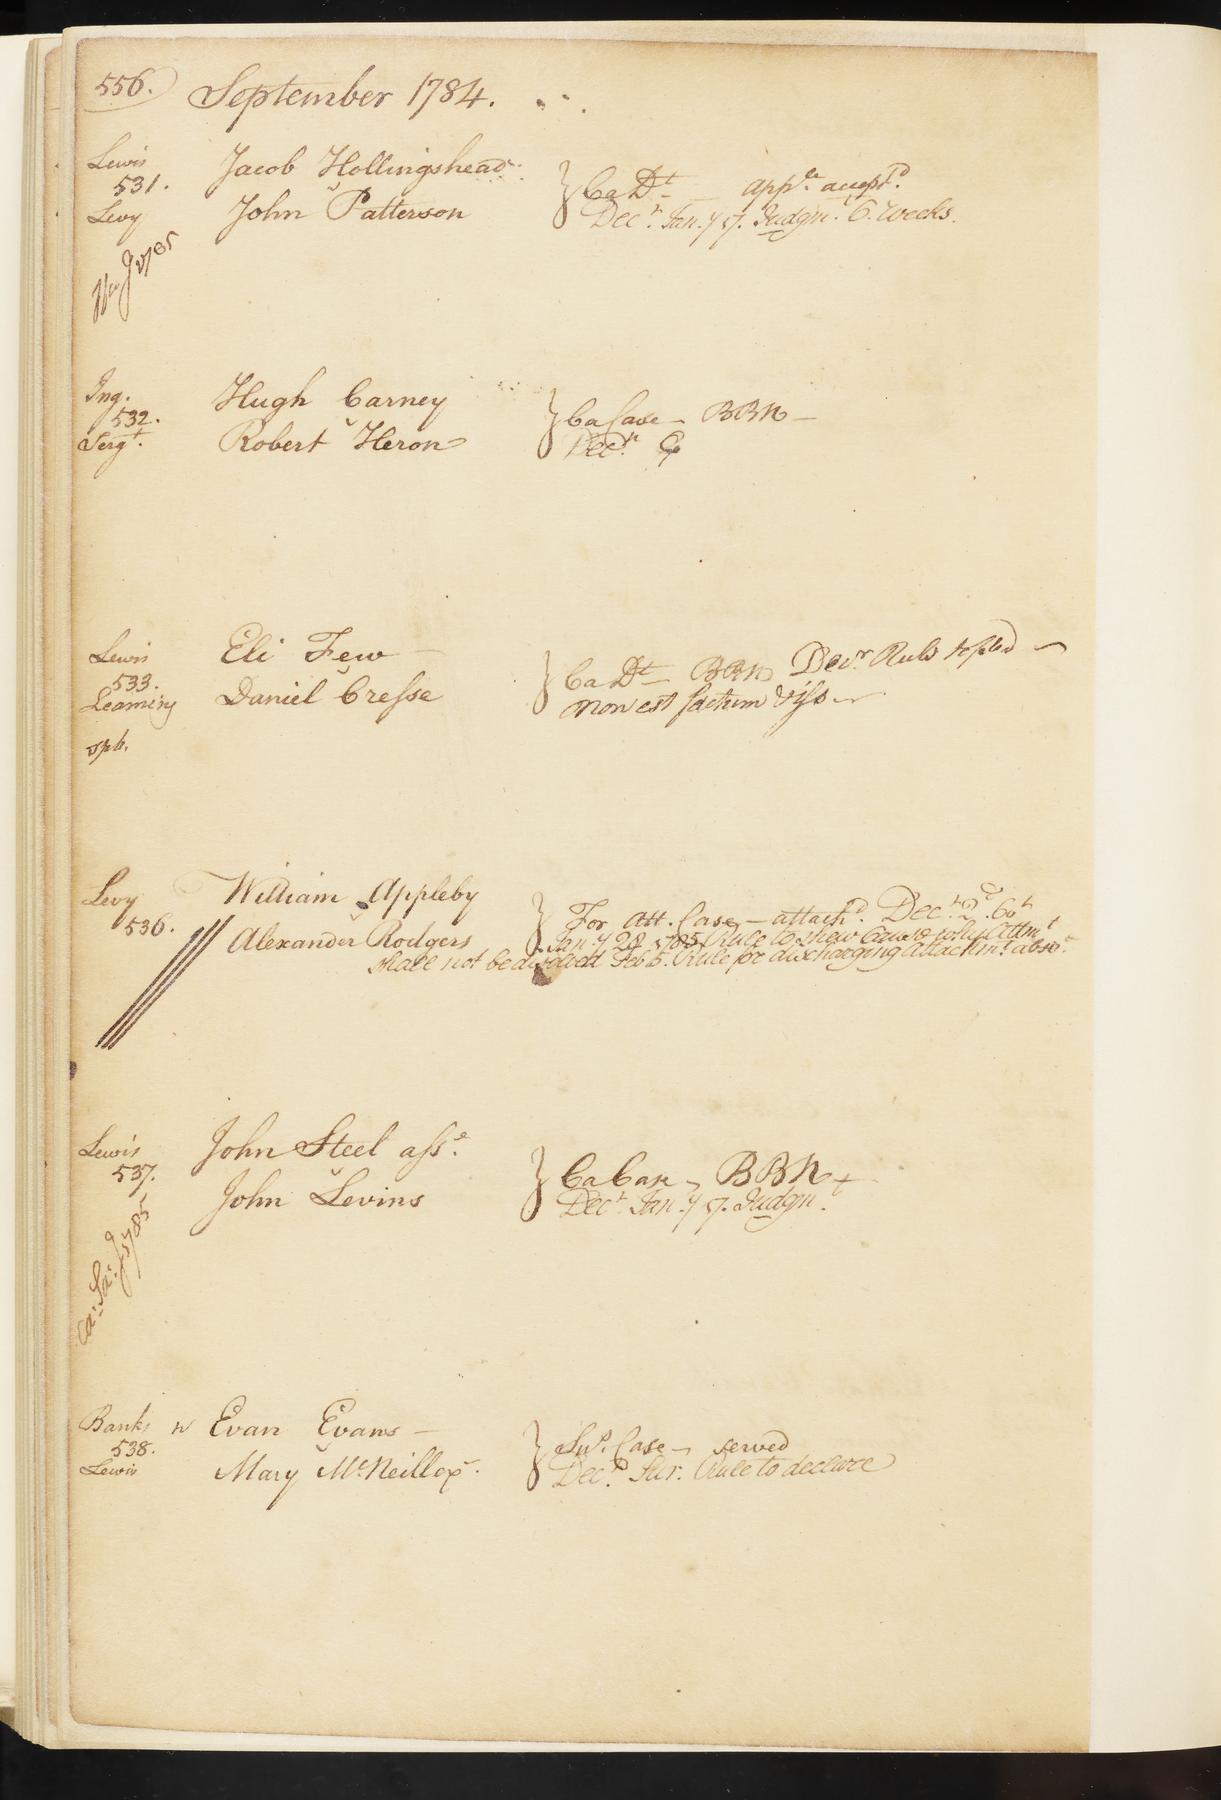 556. September 1784.
Lewis
531.
Levy
Jacob Hollingshead
v
John Patterson
Ca Dt — appce accepd.
Decn. Jan. 7 57. Judgm. 6. weeks.
J 1785
Ing.
532.
Sergt.
Hugh Carney
v
Robert Heron
Ca Case — BBN —
Decn.
Lewis
533.
Leaming
spb.
Eli Few —
v
Daniel Cresse
Ca Dt — BBN Decr Rule to plead
Non est factum
Levy
536.
William Appleby
v
Alexander Rodgers
For Att. Case — attachd. Dec.
Jan. 7 28 1785 Rule to shew Cause why Attmt
shall not be dissolved Feb 5. Rule for discharging attachmt. abso.
Lewis
537.
John Steel asse.
v
John Levins
Ca Case — BBN
Decn. Jan. 7 57. Judgm.
Ca: Sa: J 1785
Banks
538.
Lewis
Evan Evans —
v
Mary McNeill
Case — served
Rule to declare